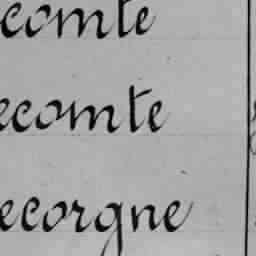 comte
ecomte
ecorgne